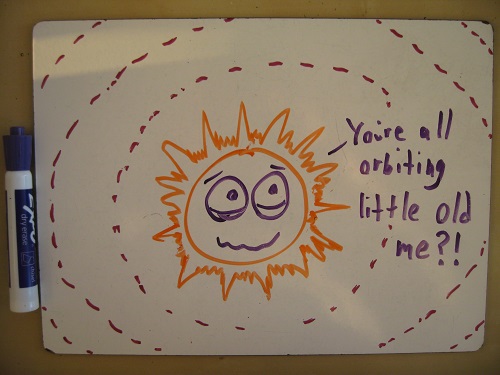 You're all
orbiting
little old
me?!
EXPO
dry erase